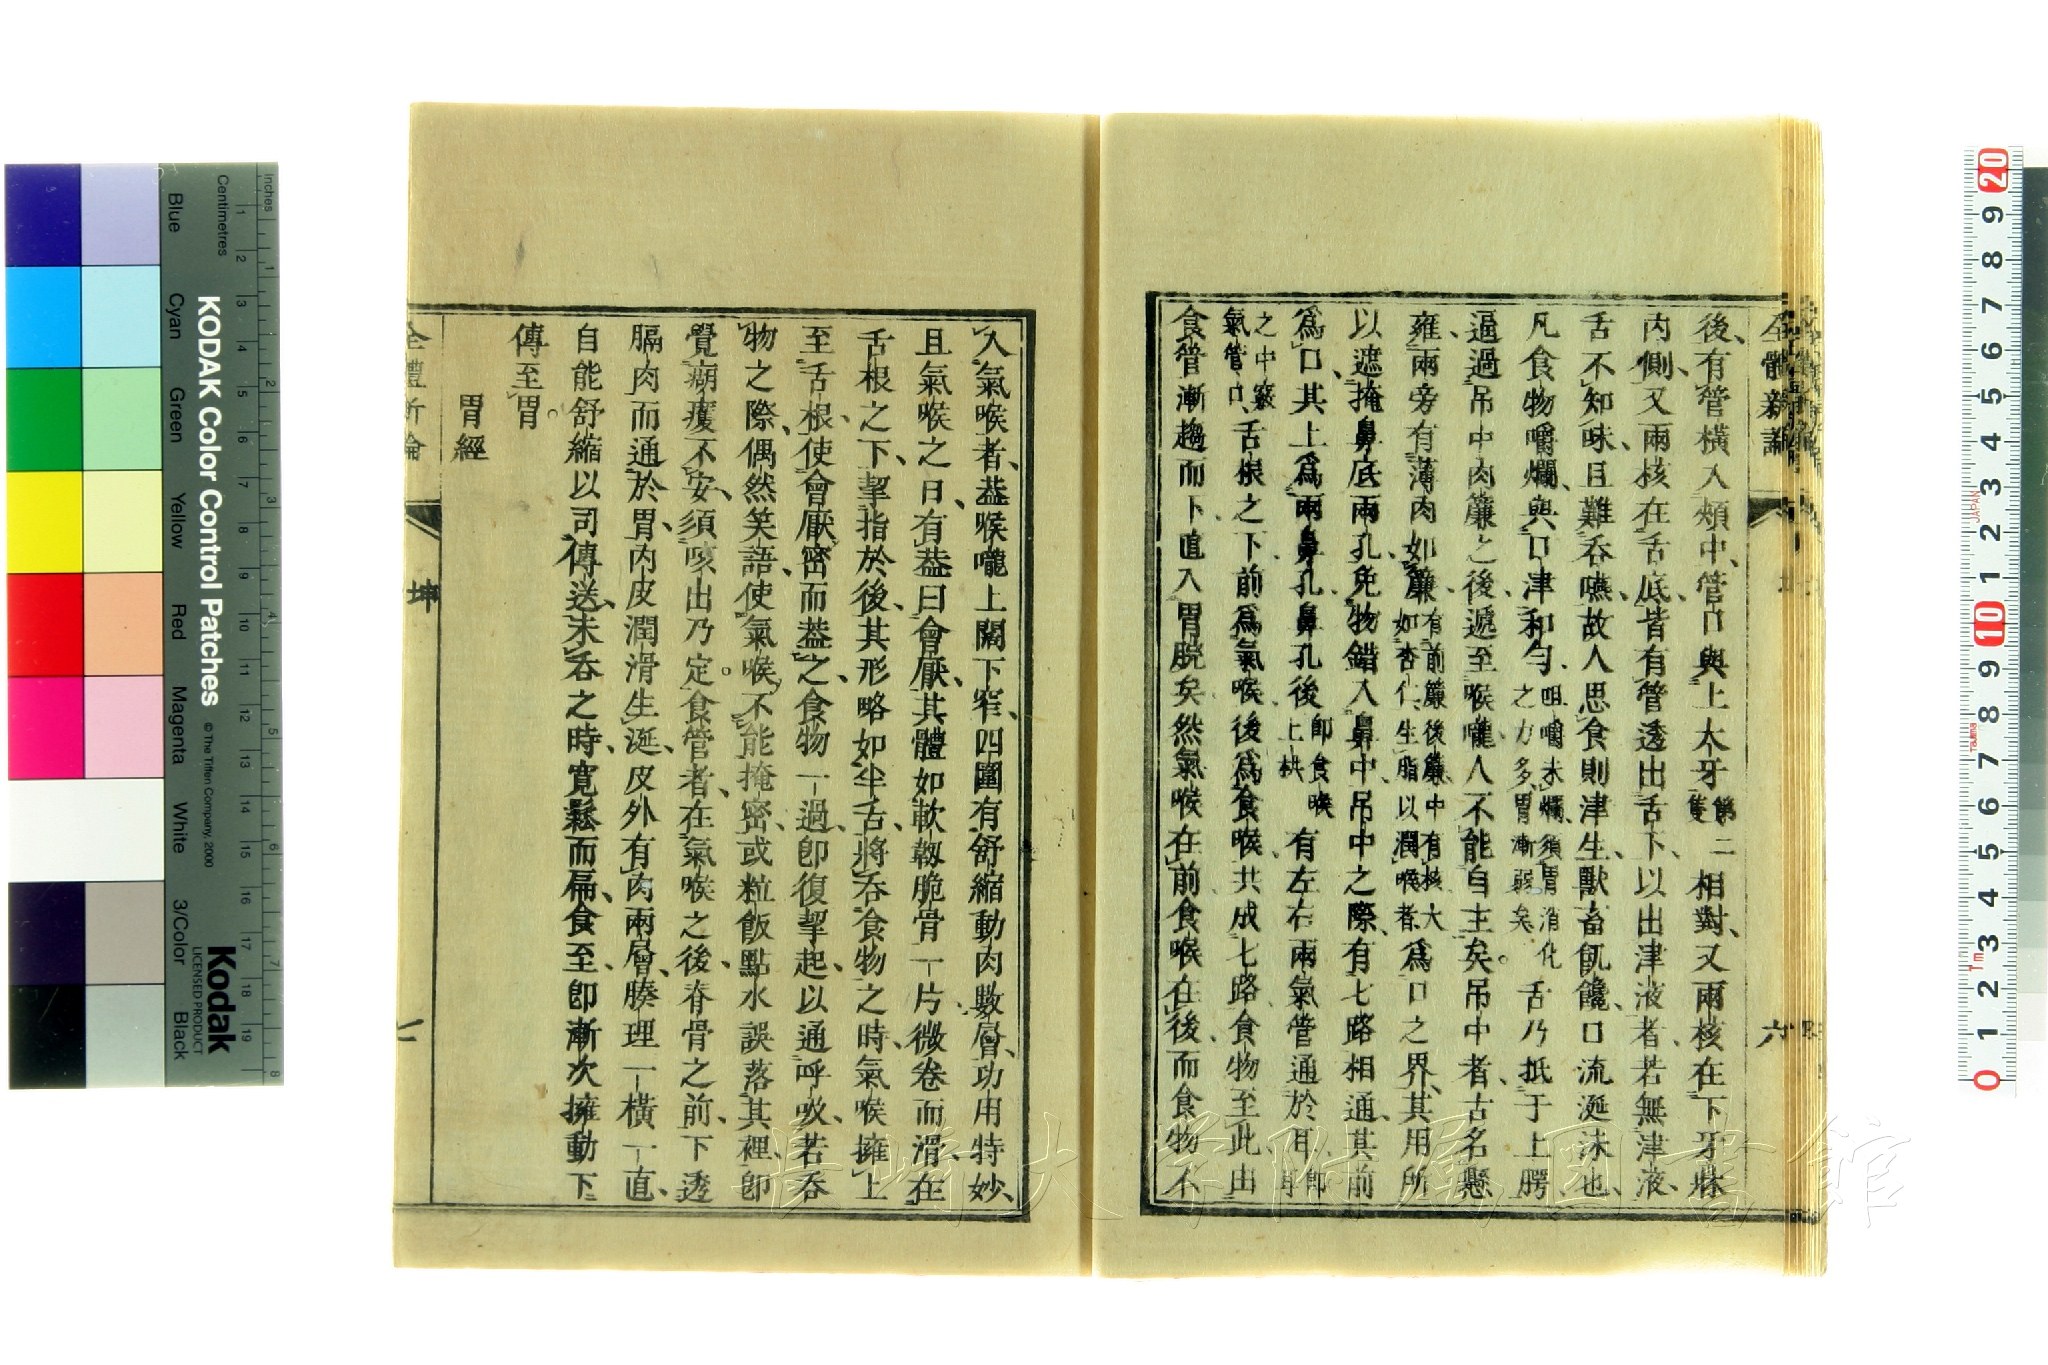 全體新論
六
後有管橫入頰中管口與上大牙第二隻相對又兩核在下牙牀
內側又兩核在舌底皆有管透出舌下以出津液者若無津液
舌不知味且難吞嚥故人思食則津生獸畜飢饞口流涎沫也
凡食物嚼爛與口津和勻咀嚼未爛須胃消化之力多胃漸弱矣舌乃抵于上腭
逼過吊中肉簾之後遞至喉嚨人不能自主矣吊中者古名懸
雍兩旁有薄肉如簾有前簾後簾中有核大如杏仁生脂以潤喉者為口之界其用所
以遮掩鼻底兩孔免物錯入鼻中吊中之際有七路相通其前
為口其上為兩鼻孔鼻孔後即食喉上拱有左右兩氣管通於耳即耳
之中竅氣管口舌根之下前為氣喉後為食喉共成七路食物至此由
食管漸趨而下直入胃脘矣然氣喉在前食喉在後而食物不
入氣喉者葢喉嚨上闊下窄四圍有舒縮動肉數層功用特妙
且氣喉之口有葢曰會厭其體如軟韌脆骨一片微卷而滑在
舌根之下挈指於後其形略如半舌將吞食物之時氣喉擁上
至舌根使會厭密而葢之食物一過卽復挈起以通呼吸若吞
物之際偶然笑語使氣喉不能掩密或粒飯點水誤落其裡卽
覺瘹癢不安須咳出乃定食管者在氣喉之後脊骨之前下透
膈肉而通於胃內皮潤滑生涎皮外有肉兩層腠理一橫一直
自能舒縮以司傳送未吞之時寬鬆而扁食至卽漸次擁動下
傳至胃
胃經
全體新論
坤
長崎大学附属図書館
KODAK Color Control Patches
© The Tiffen Company, 2000
Kodak
LICENSED PRODUCT
Centimetres
inches
Blue
Cyan
Green
Yellow
Red
Magenta
White
3/Color
Black
JAPAN